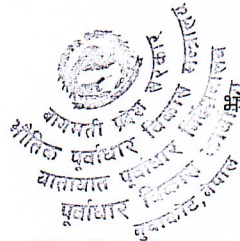 बागमती प्रदेश सरकार
भौतिक पूर्वाधार विकास मन्त्रालय
यातायात पूर्वाधार निर्देशनालय
पूर्वाधार विकास कार्यालय
नुवाकोट, नेपाल